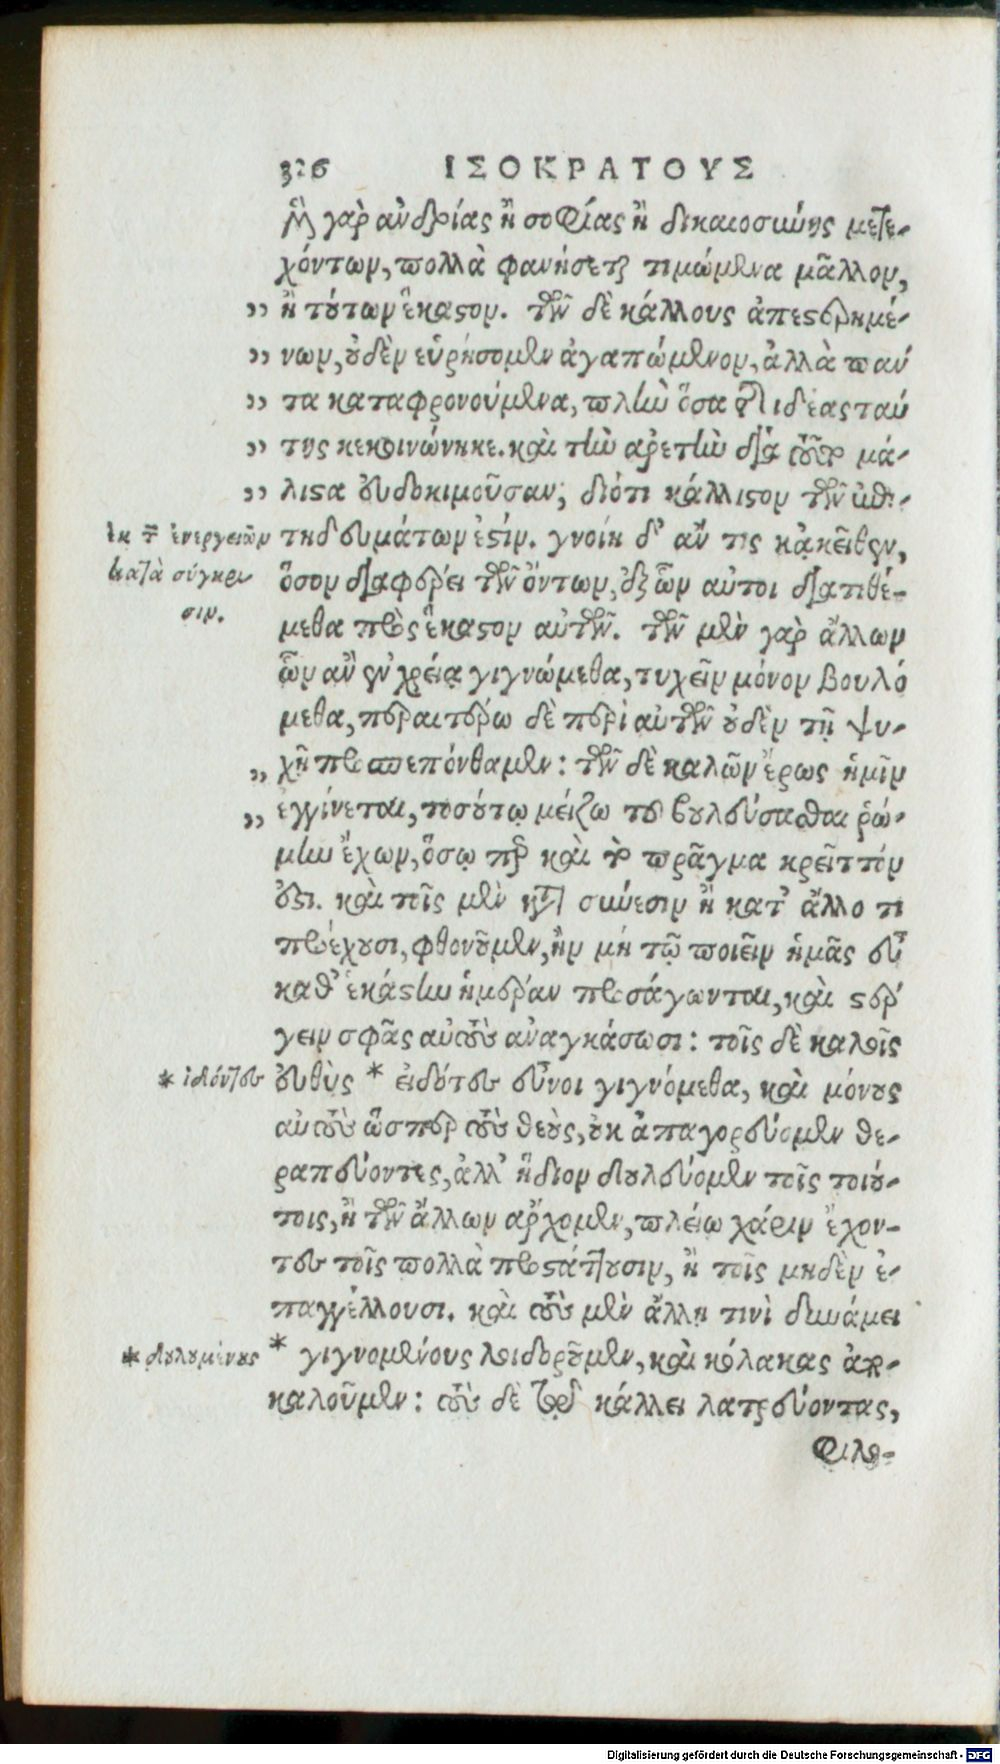 326 ΙΣΟΚΡΑΤΟΥΣ
μὴ γὰρ ἀνδρίας ἢ σοφίας ἢ δικαιοσύνης μετε-
χόντων, πολλὰ φανήσεται τιμώμενα μᾶλλον,
„ ἢ τούτων ἕκαστον. τῶν δὲ κάλλους ἀπεστερημέ-
„ νων, οὐδὲν εὑρήσομεν ἀγαπώμενον, ἀλλὰ πάν
„ τα καταφρονούμενα, πλὴν ὅσα τῆς ἰδέας ταύ
„ της κεκοινώνηκε. καὶ τὴν ἀρετὴν διὰ τοῦτο μά-
„ λιστα εὐδοκιμοῦσαν, διότι κάλλιστον τῶν ἐπι-
ἐκ τῶν ἐνεργειῶν
κατὰ σύγκρι
σιν.
τηδευμάτων ἐστίν. γνοίη δ᾽ ἄν τις κἀκεῖθεν,
ὅσον διαφέρει τῶν ὄντων, ἐξ ὧν αὐτοὶ διατιθέ-
μεθα πρὸς ἕκαστον αὐτῶν. τῶν μὲν γὰρ ἄλλων
ὧν ἂν ἐν χρείᾳ γιγνώμεθα, τυχεῖν μόνον βουλό
μεθα, περαιτέρω δὲ περὶ αὐτῶν οὐδὲν τῇ ψυ-
„ χῇ προσπεπόνθαμεν: τῶν δὲ καλῶν ἔρως ἡμῖν
„ ἐγγίνεται, τοσούτῳ μείζω τοῦ βουλεύσασθαι ῥώ-
μην ἔχων, ὅσῳ περ καὶ τὸ πρᾶγμα κρεῖττόν
ἐστι. καὶ τοῖς μὲν κατὰ σύνεσιν ἢ κατ᾽ ἄλλο τι
προέχουσι, φθονοῦμεν, ἢν μὴ τῷ ποιεῖν ἡμᾶς εὖ
καθ᾽ ἑκάστην ἡμέραν προσάγωνται, καὶ στέρ
γειν σφᾶς αὐτοὺς ἀναγκάσωσι: τοῖς δὲ καλοῖς
* ἰδόντες
εὐθὺς * εἰδότες εὖνοι γιγνόμεθα, καὶ μόνους
αὐτοὺς ὥσπερ τοὺς θεοὺς, οὐκ ἀπαγορεύομεν θε-
ραπεύοντες, ἀλλ᾽ ἥδιον δουλεύομεν τοῖς τοιού-
τοις, ἢ τῶν ἄλλων ἄρχομεν, πλείω χάριν ἔχον-
τες τοῖς πολλὰ προστάττουσιν, ἢ τοῖς μηδὲν ἐ-
παγγέλλουσι. καὶ τοὺς μὲν ἄλλῃ τινὶ δυνάμει
* δουλουμένους
* γιγνομένους λοιδοροῦμεν, καὶ κόλακας ἀπο-
καλοῦμεν: τοὺς δὲ τῷ κάλλει λατρεύοντας,
φιλο-
Digitalisierung gefördert durch die Deutsche Forschungsgemeinschaft - DFG